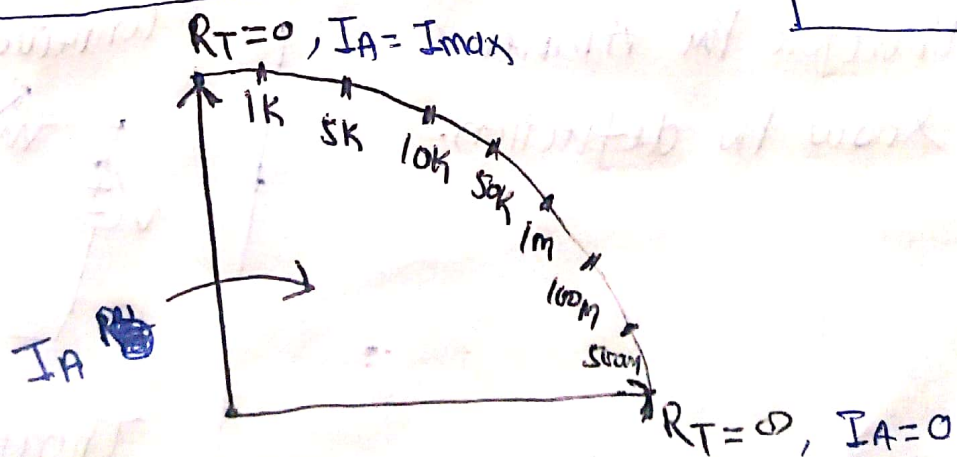 R_T=0, I_A= Imax
1K
5K
10K
50K
1m
100m
I_A
R_T=∞, I_A=0